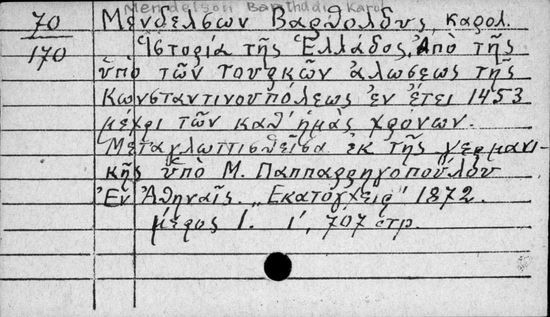 Mendelson Bartholdi Karol
70 Μενδελσων Βαρθολδυς, καρολ.
170 Ἱστορία τῆς Ἑλλάδος, Ἀπὸ τῆς
ὑπὸ τῶν Τουρκῶν ἁλώσεως τῆς
Κωνσταντινουπόλεως ἐν ἔτει 1453
μέχρι τῶν καθ' ἡμᾶς χρονων.
Μεταγλωττισθεῖσα ἐκ τῆς γερμανι-
κῆς ὑπὸ Μ. Παππαρρηγοπούλου
Ἐν Ἀθηναῖς. „Εκατόγχειρ" 1872.
μέρος 1. 1', 707 στρ.